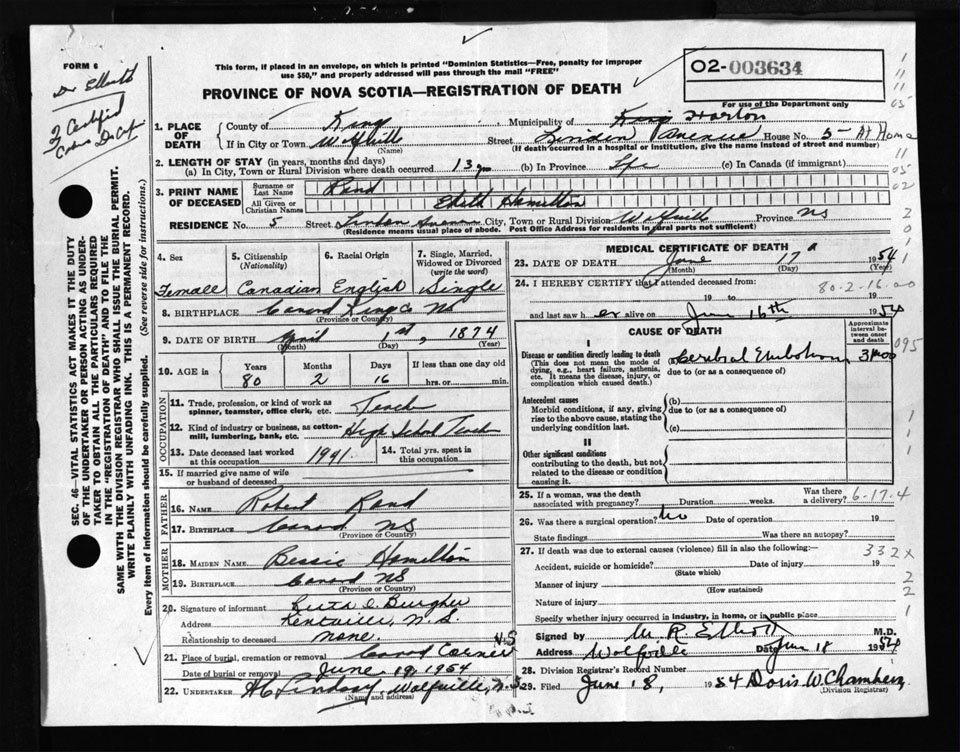 FORM 6
This form, if placed in an envelope, on which is printed "Dominion Statistics—Free, penalty for improper
use $50," and properly addressed will pass through the mail "FREE"
PROVINCE OF NOVA SCOTIA—REGISTRATION OF DEATH
02-003634
For use of the Department only
Dr Elliott
Certified
1. PLACE OF DEATH
County of Kings Municipality of Kings Horton
If in City or Town Wolfville (Name) Street Linden Avenue House No. 5 - At Home
(If death occurred in a hospital or institution, give the name instead of street and number)
2. LENGTH OF STAY (in years, months and days)
(a) In City, Town or Rural Division where death occurred 13 (b) In Province Life (c) In Canada (if immigrant)
3. PRINT NAME OF DECEASED
Surname or Last Name Rand
All Given or Christian Names Edith Hamilton
RESIDENCE No. 5 Street Linden Avenue City, Town or Rural Division Wolfville Province NS
(Residence means usual place of abode. Post Office Address for residents in rural parts not sufficient)
4. Sex Female
5. Citizenship (Nationality) Canadian
6. Racial Origin English
7. Single, Married, Widowed or Divorced (write the word) Single
8. BIRTHPLACE Canard Kings Co NS
(Province or Country)
9. DATE OF BIRTH April 1st, 1874
(Month) (Day) (Year)
10. AGE in Years 80 Months 2 Days 16 If less than one day old hrs. or min.
OCCUPATION
11. Trade, profession, or kind of work as spinner, teamster, office clerk, etc. Teach
12. Kind of industry or business, as cotton-mill, lumbering, bank, etc. High School Teach
13. Date deceased last worked at this occupation 1941
14. Total yrs. spent in this occupation
15. If married give name of wife or husband of deceased
FATHER
16. NAME Robert Rand
17. BIRTHPLACE Canard NS
(Province or Country)
MOTHER
18. MAIDEN NAME Bessie Hamilton
19. BIRTHPLACE Canard NS
(Province or Country)
20. Signature of informant Ruth O. Burgher
Address Kentville, N.S.
Relationship to deceased none.
21. Place of burial, cremation or removal Canard Corner N.S
Date of burial or removal June 19, 1954
22. UNDERTAKER H C Lindsay, Wolfville, N.S
(Name and address)
MEDICAL CERTIFICATE OF DEATH
23. DATE OF DEATH June 17 1954
(Month) (Day) (Year)
24. I HEREBY CERTIFY that I attended deceased from:
80-2-16-00
19 to 19
and last saw her alive on June 16th 1954
CAUSE OF DEATH
Approximate interval between onset and death
I
Disease or condition directly leading to death
(This does not mean the mode of dying, e.g., heart failure, asthenia, etc. It means the disease, injury, or complication which caused death.)
(a) Cerebral Embolism 3 mos
due to (or as a consequence of)
095
Antecedent causes
Morbid conditions, if any, giving rise to the above cause, stating the underlying condition last.
(b)
due to (or as a consequence of)
(c)
II
Other significant conditions
contributing to the death, but not related to the disease or condition causing it.
25. If a woman, was the death associated with pregnancy? Duration weeks. Was there a delivery?
6-17-4
26. Was there a surgical operation? No Date of operation 19
State findings Was there an autopsy?
27. If death was due to external causes (violence) fill in also the following:—
332X
Accident, suicide or homicide? Date of injury 19
(State which)
Manner of injury
(How sustained)
Nature of injury
Specify whether injury occurred in industry, in home, or in public place
Signed by M R Elliott M.D.
Address Wolfville Date June 18 1954
28. Division Registrar's Record Number
29. Filed June 18, 1954 Doris W. Chambers
(Division Registrar)
SEC. 46—VITAL STATISTICS ACT MAKES IT THE DUTY
OF THE UNDERTAKER OR PERSON ACTING AS UNDER-
TAKER TO OBTAIN ALL THE PARTICULARS REQUIRED
IN THE "REGISTRATION OF DEATH" AND TO FILE THE
SAME WITH THE DIVISION REGISTRAR WHO SHALL ISSUE THE BURIAL PERMIT.
WRITE PLAINLY WITH UNFADING INK. THIS IS A PERMANENT RECORD.
Every item of information should be carefully supplied. (See reverse side for instructions.)